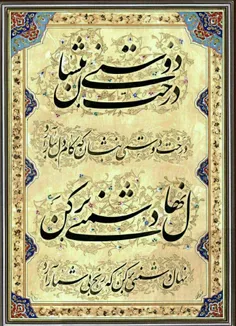 درخت دوستی بنشان
درخت دوستی بنشان که کام دل ببار آرد
نهال دشمنی برکن
نهال دشمنی برکن که رنج بی شمار آرد